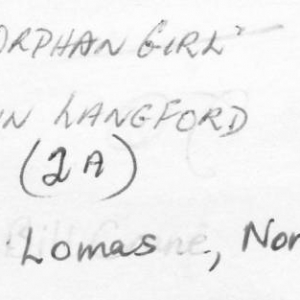 ORPHAN GIRL"
N LANGFORD
(2A)
Lomas, Nor